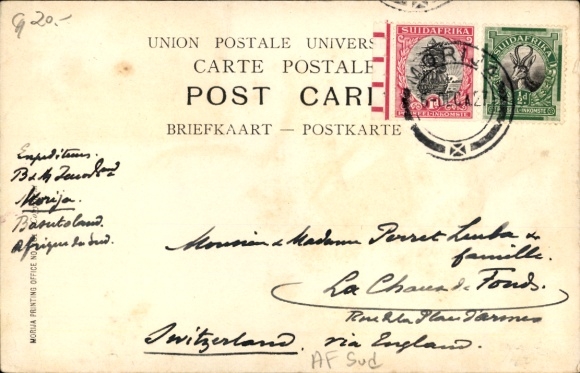 20.-
UNION POSTALE UNIVERS
CARTE POSTALE
POST CAR
BRIEFKAART — POSTKARTE
SUIDAFRIKA
SUIDAFRIKA
INKOMSTE
½d
INKOMSTE
MORIJ
Expediteurs.
B & M
Morija.
Basutoland.
Afrique du Sud.
MORIJA PRINTING OFFICE NO
Monsieur & Madame Perret Leuba &
famille.
La Chaux de Fonds.
Rue de la Place d'armes
Switzerland. via England.
AF Sud